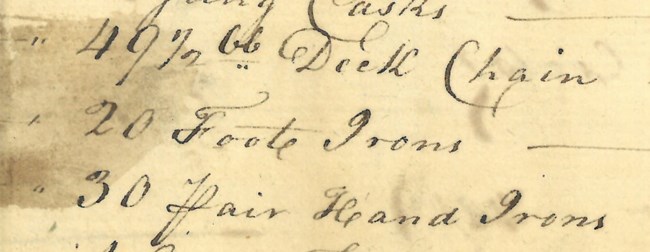 Casks
" 49½ lb Deck Chain
" 20 Foote Irons
" 30 Pair Hand Irons